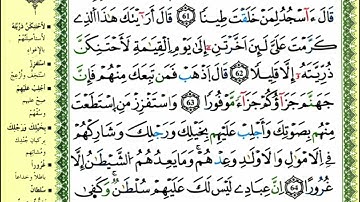 قَالَ ءَا۬سْجُدُ لِمَنْ خَلَقْتَ طِيناٗ 61 قَالَ أَرَٰٓيْتَكَ هَٰذَا اَ۬لذِے
كَرَّمْتَ عَلَيَّ لَئِنَ اَخَّرْتَنِۦٓ إِلَيٰ يَوْمِ اِ۬لْقِيَٰمَةِ لَأَحْتَنِكَنَّ
ذُرِّيَّتَهُۥٓ إِلَّا قَلِيلاٗ 62 قَالَ اَ۪ذْهَبْ فَمَن تَبِعَكَ مِنْهُمْ فَإِنَّ
جَهَنَّمَ جَزَآؤُكُمْ جَزَآءٗ مَّوْفُوراٗ 63 وَاسْتَفْزِزْ مَنِ اِ۪سْتَطَعْتَ
مِنْهُم بِصَوْتِكَ وَأَجْلِبْ عَلَيْهِم بِخَيْلِكَ وَرَجْلِكَ وَشَارِكْهُمْ
فِے اِ۬لَامْوَٰلِ وَالَاوْلَٰدِ وَعِدْهُمْ وَمَا يَعِدُهُمُ اُ۬لشَّيْطَٰنُ إِلَّا
غُرُوراً 64 اِنَّ عِبَادِے لَيْسَ لَكَ عَلَيْهِمْ سُلْطَٰنٞ وَكَفَىٰ
لَأَحْتَنِكَنَّ ذُرِّيَّتَهُ
بالإغواء
اسْتَفْزِزْ
أَجْلِبْ عَلَيْهِم
صِحْ عليهم
بِخَيْلِكَ وَرَجْلِكَ
غُرُوراً
باطلا وخداعا
سُلْطَانٌ